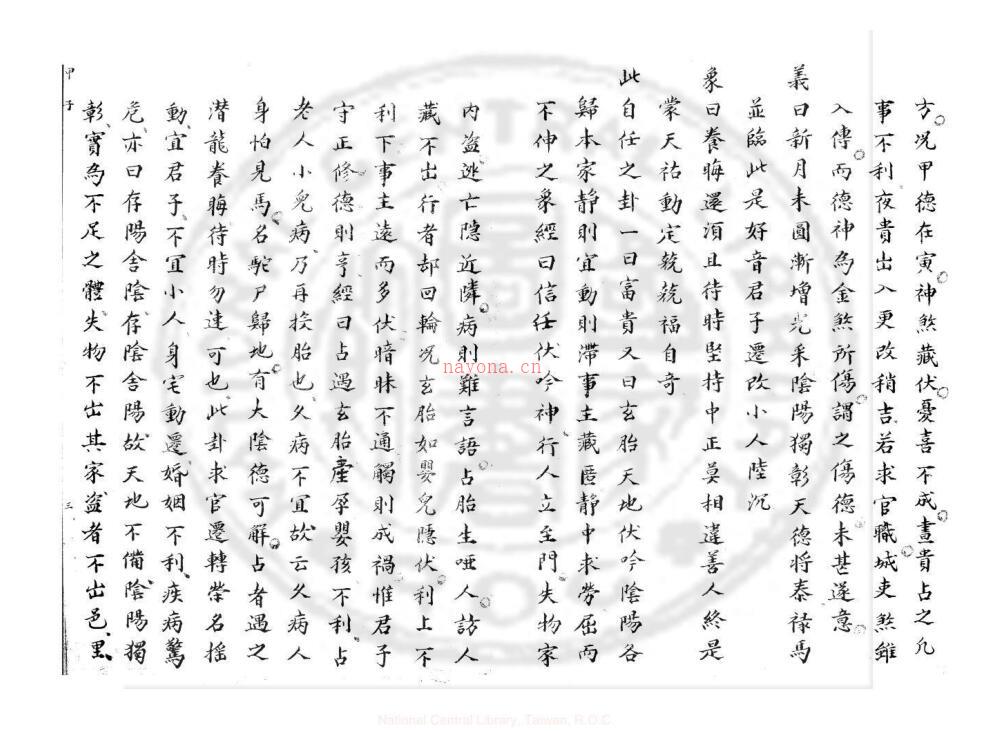 方况甲德在寅神煞藏伏憂喜不成晝貴占之凡
事不利夜貴出入更改稍吉若求官職城吏煞雖
入傳而德神為金煞所傷謂之傷德未甚遂意
義曰新月未圓漸增光采陰陽獨彰天德將泰祿馬
並臨此是好音君子遷改小人陸沉
象曰養晦還須且待時堅持中正莫相違善人終是
蒙天祐動定兢兢福自奇
此自任之卦一曰富貴又曰玄胎天地伏吟陰陽各
歸本家靜則宜動則滯事主藏匿靜中求勞屈而
不伸之象經曰信任伏吟神行人立至門失物家
內盜逃亡隱近隣病則難言語占胎生啞人訪人
藏不出行者却回輪况玄胎如嬰兒隱伏利上不
利下事主遠而多伏暗昧不通觸則成禍惟君子
守正修德則亨經曰占遇玄胎產孕嬰孩不利占
老人小兒病乃再投胎也久病不宜故云久病人
身怕見馬名駝尸歸地有大陰德可解占者遇之
潛龍養晦待時勿違可也此卦求官遷轉榮名搖
動宜君子不宜小人身宅動遷婚姻不利疾病驚
危亦曰存陽舍陰存陰舍陽故天地不備陰陽獨
彰實為不足之體失物不出其家盜者不出邑里
甲子
三
nayona.cn
National Central Library, Taiwan, R.O.C